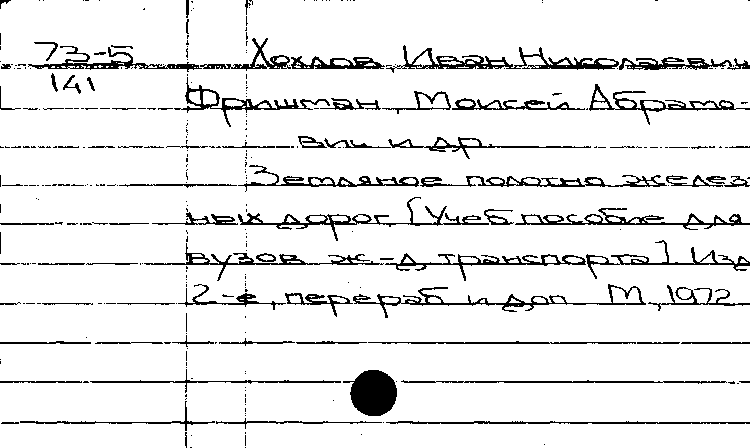 73-5 Хохлов, Иван Николаевич
141
Фришман, Моисей Абрамо-
вич и др.
Земляное полотно желез-
ных дорог. [Учеб. пособие для
вузов ж.-д. транспорта]. Изд.
2-е, перераб. и доп. М., 1972